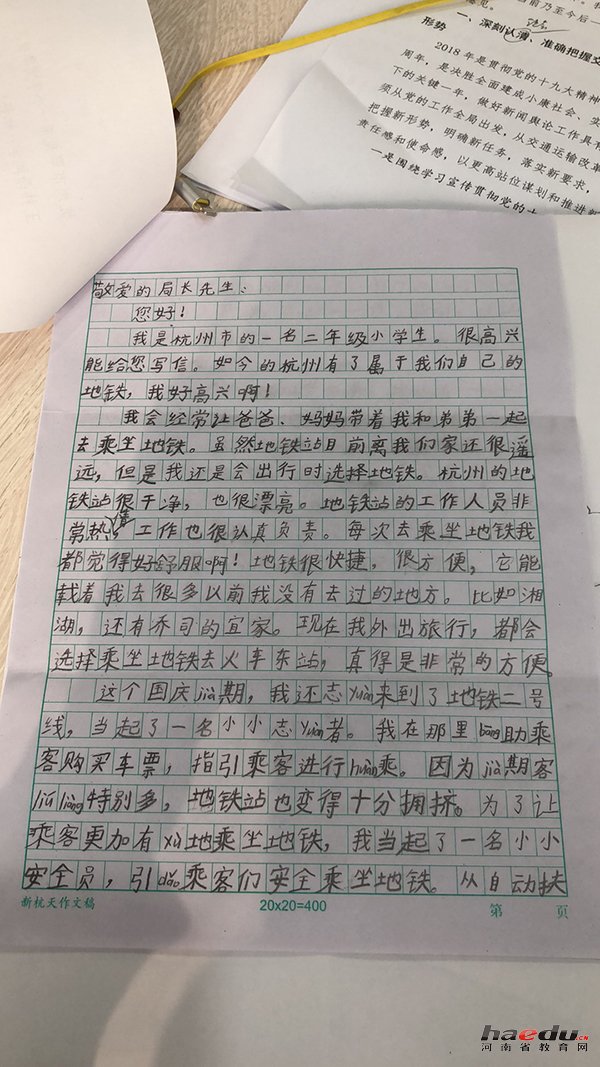 形势 一、深刻认清、准确把握交
2018年是贯彻党的十九大精神
周年，是决胜全面建成小康社会、实
下的关键一年，做好新闻舆论工作具有
须从党的工作全局出发，从交通运输改革
把握新形势，明确新任务，落实新要求，
责任感和使命感，以更高站位谋划和推进新
一是围绕学习宣传贯彻党的十
敬爱的局长先生：
您好！
我是杭州市的一名二年级小学生。很高兴
能给您写信。如今的杭州有了属于我们自己的
地铁，我好高兴啊！
我会经常让爸爸、妈妈带着我和弟弟一起
去乘坐地铁。虽然地铁站目前离我们家还很遥
远，但是我还是会出行时选择地铁。杭州的地
铁站很干净，也很漂亮。地铁站的工作人员非
常热情，工作也很认真负责。每次去乘坐地铁我
都觉得好舒服啊！地铁很快捷，很方便，它能
载着我去很多以前我没有去过的地方。比如湘
湖，还有乔司的宜家。现在我外出旅行，都会
选择乘坐地铁去火车东站，真得是非常的方便。
这个国庆jià期，我还志yuàn来到了地铁二号
线，当起了一名小小志yuàn者。我在那里bāng助乘
客购买车票，指引乘客进行huàn乘。因为jià期客
liú liàng特别多，地铁站也变得十分拥挤。为了让
乘客更加有xù地乘坐地铁，我当起了一名小小
安全员，引dǎo乘客们安全乘坐地铁。从自动扶
新杭天作文稿 20×20=400 第 页
haedu.cn
河南省教育网